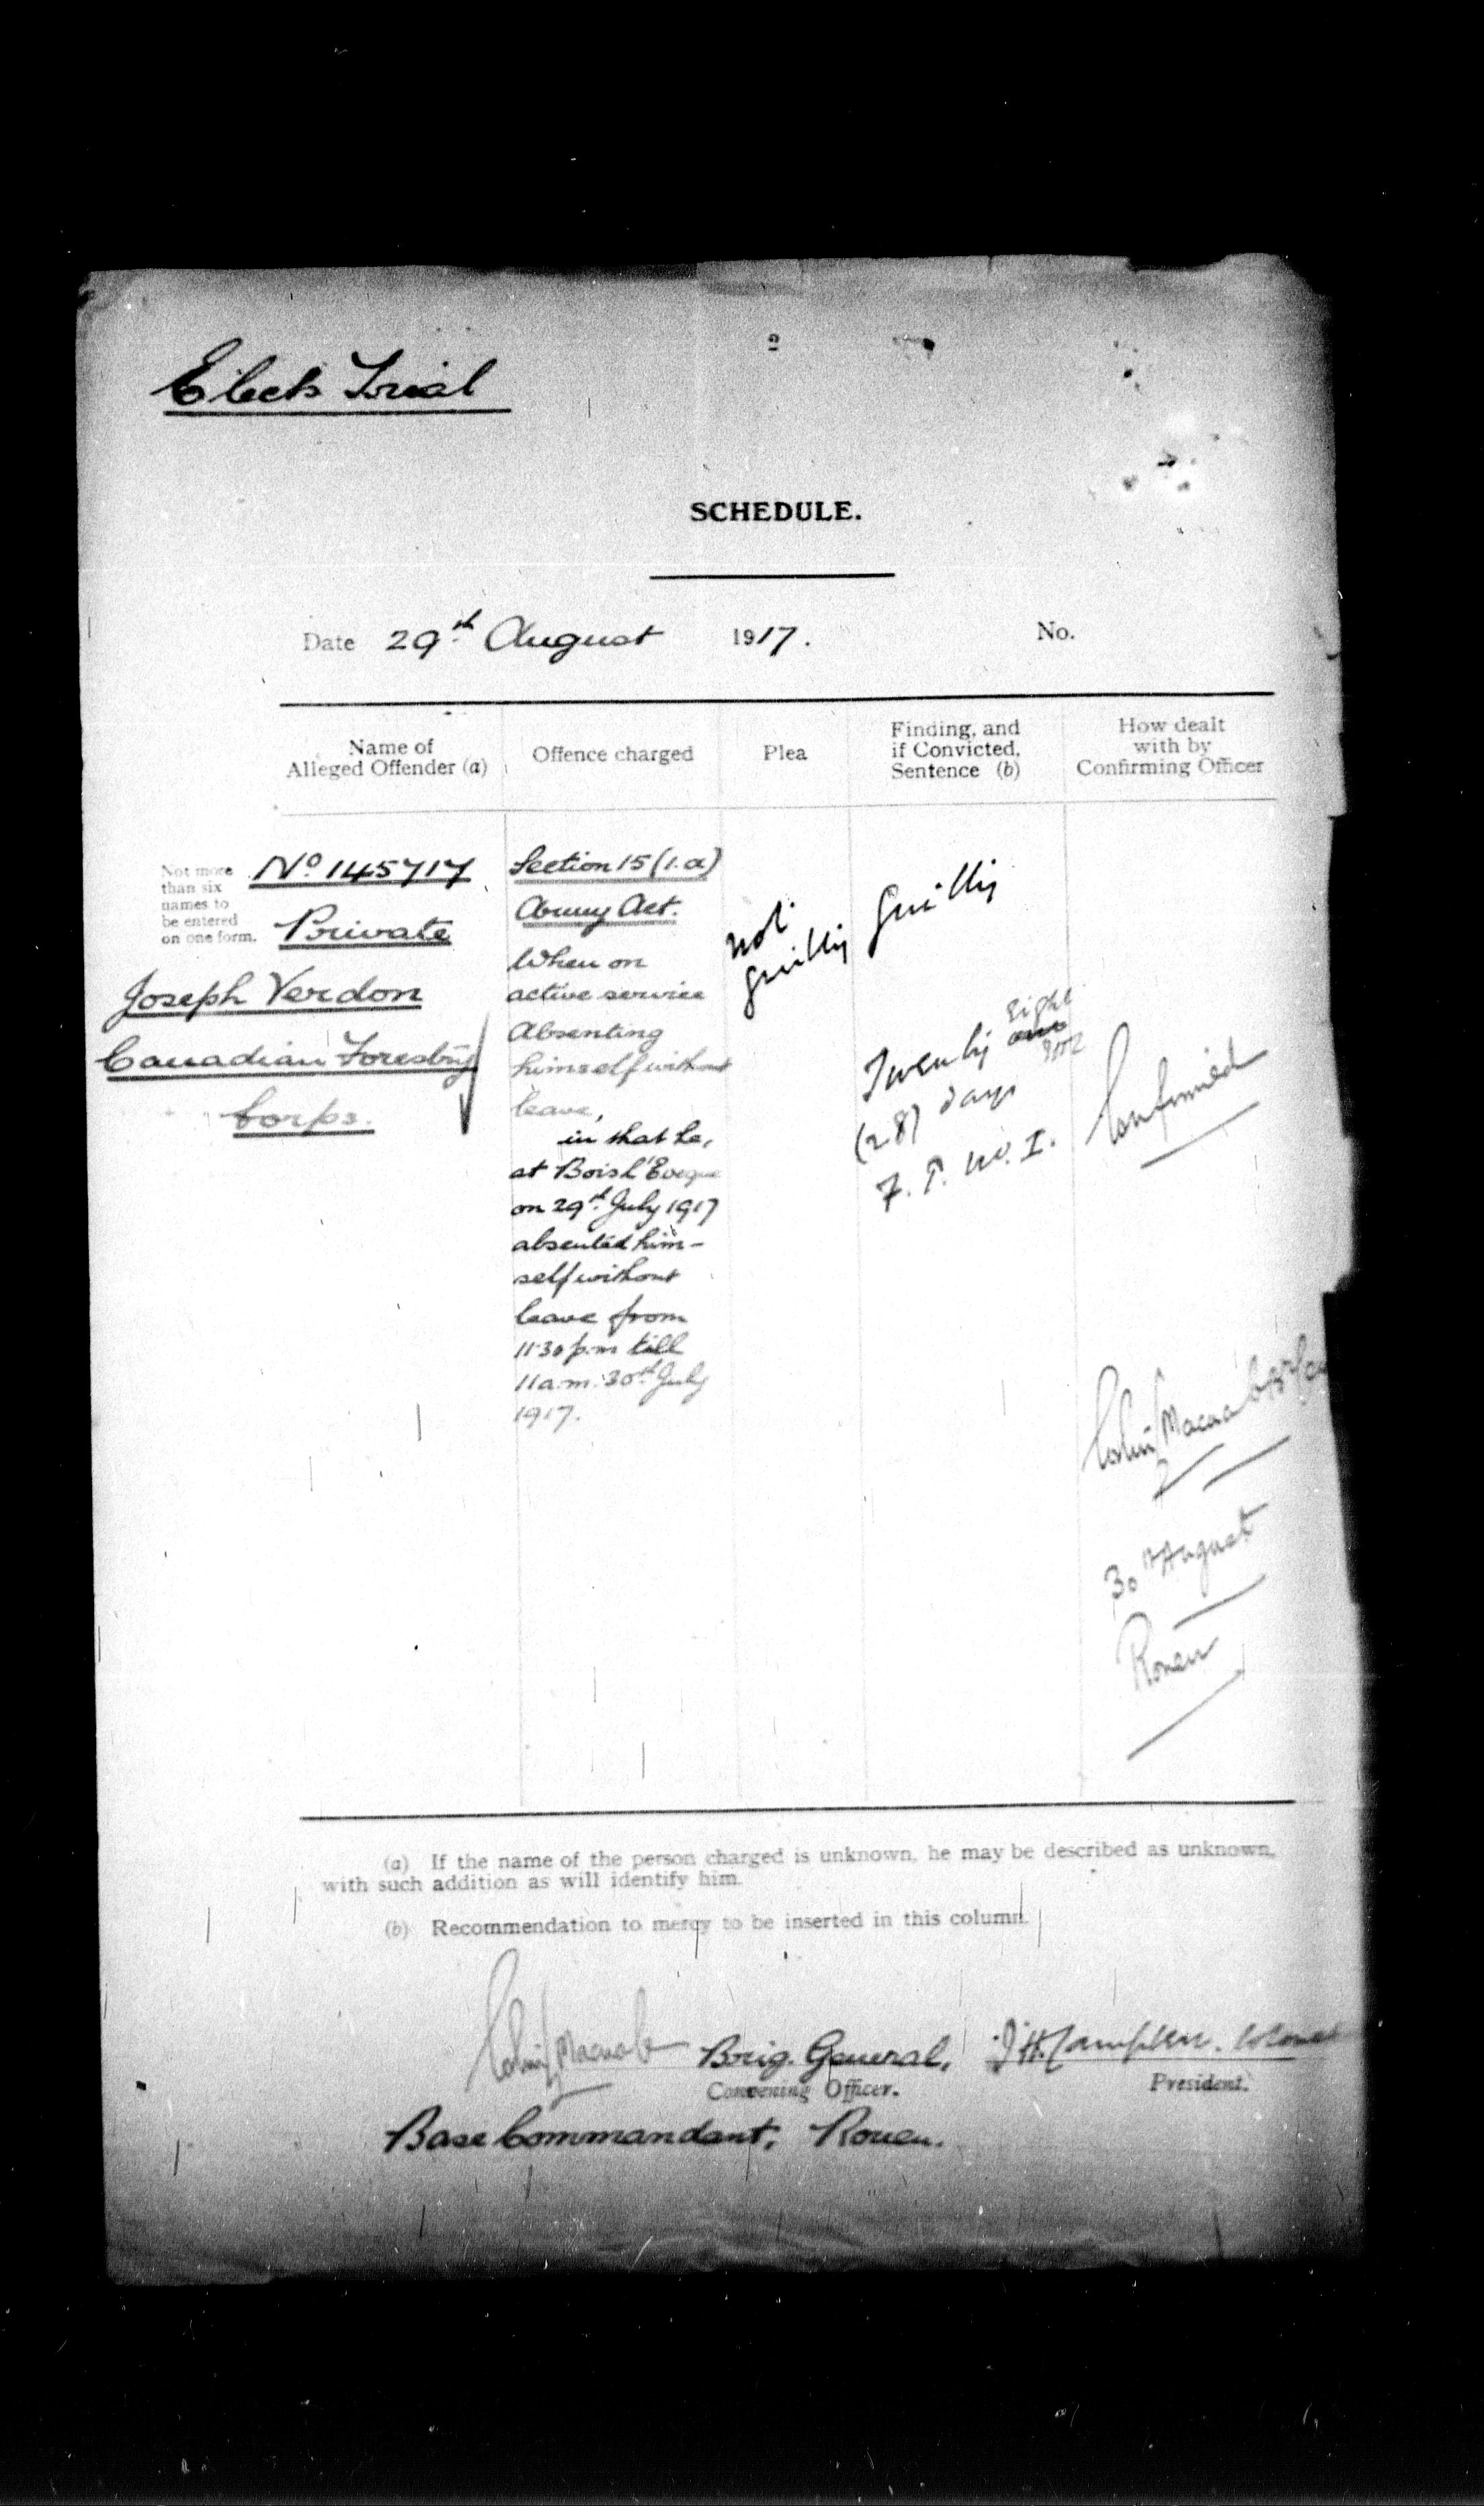 2
Elects Trial
SCHEDULE.
Date 29th August 1917. No.
Name of
Alleged Offender (a)
Offence charged
Plea
Finding, and
if Convicted,
Sentence (b)
How dealt
with by
Confirming Officer
Not more
than six
names to
be entered
on one form.
No 145717
Private
Joseph Verdon
Canadian Forestry
Corps.
Section 15 (1.a)
Army Act.
When on
active service
Absenting
himself without
leave,
in that he,
at Bois L'Eveque
on 29th July 1917
absented him-
self without
leave from
11.30 p.m till
11 a.m. 30th July
1917.
not
guilty
Guilty
eight
Twenty one
(28) days
F. P. No. I.
Confirmed
Colin Macnab
30th August
Rouen
(a) If the name of the person charged is unknown, he may be described as unknown,
with such addition as will identify him.
(b) Recommendation to mercy to be inserted in this column.
Colin Macnab Brig. General, Colonel
Convening Officer. President.
Base Commandant, Rouen.